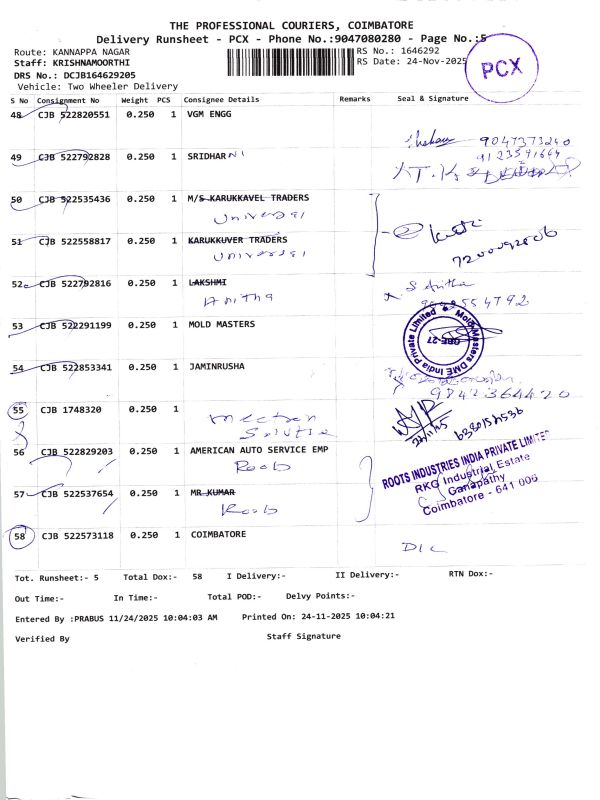 THE PROFESSIONAL COURIERS, COIMBATORE
Delivery Runsheet - PCX - Phone No.:9047080280 - Page No.:5
Route: KANNAPPA NAGAR
RS No.: 1646292
Staff: KRISHNAMOORTHI
RS Date: 24-Nov-2025
PCX
DRS No.: DCJB164629205
Vehicle: Two Wheeler Delivery
S No Consignment No Weight PCS Consignee Details Remarks Seal & Signature
48 CJB 522820551 0.250 1 VGM ENGG
9047373240
49 CJB 522792828 0.250 1 SRIDHARNI
9123591664
50 CJB 522535436 0.250 1 M/S KARUKKAVEL TRADERS
Universal
51 CJB 522558817 0.250 1 KARUKKUVER TRADERS
Universal
52 CJB 522792816 0.250 1 LAKSHMI
Anitha
S Anitha
53 CJB 522291199 0.250 1 MOLD MASTERS
Mold-Masters DME India Private Limited
CBE-27
54 CJB 522853341 0.250 1 JAMINRUSHA
9842364420
55 CJB 1748320 0.250 1
24/11/25
56 CJB 522829203 0.250 1 AMERICAN AUTO SERVICE EMP
Roob
ROOTS INDUSTRIES INDIA PRIVATE LIMITED
RKG Industrial Estate
Ganapathy
Coimbatore - 641 006
57 CJB 522537654 0.250 1 MR KUMAR
Roob
58 CJB 522573118 0.250 1 COIMBATORE
DIL
Tot. Runsheet:- 5 Total Dox:- 58 I Delivery:- II Delivery:- RTN Dox:-
Out Time:- In Time:- Total POD:- Delvy Points:-
Entered By :PRABUS 11/24/2025 10:04:03 AM Printed On: 24-11-2025 10:04:21
Verified By Staff Signature